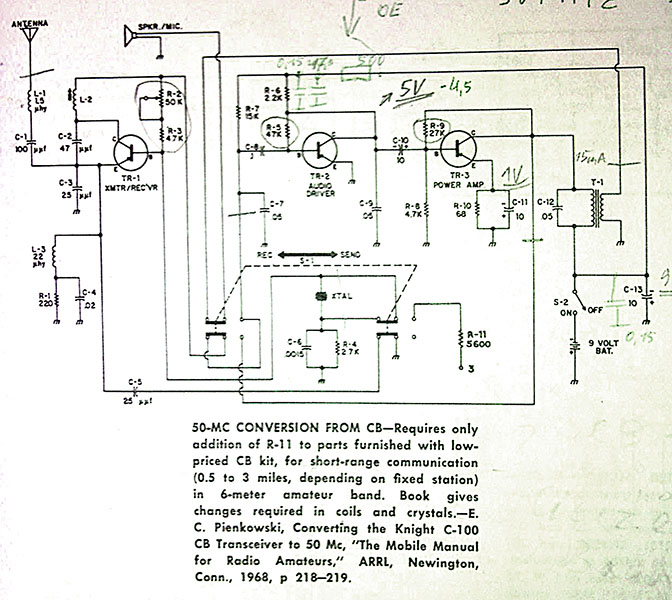 OE
ANTENNA
SPKR./MIC.
0,15
500
5V - 4,5
L-1
1.5
µhy
L-2
R-2
50K
R-3
4.7K
C-1
100 µµf
C-2
47 µµf
C-3
25 µµf
TR-1
XMTR/REC'VR
C
B
E
R-7
15K
R-6
2.2K
R-5
47K
C-8
.1
TR-2
AUDIO
DRIVER
C
E
C-7
.05
C-9
.05
C-10
10
R-9
27K
TR-3
POWER AMP
C
B
E
1V
R-8
4.7K
R-10
68
C-11
10
15mA
T-1
C-12
.05
L-3
22
µhy
R-1
220
C-4
.02
REC SEND
S-1
XTAL
C-6
.0015
R-4
2.7K
R-11
5600
3
S-2
ON
OFF
C-13
10
9
0,15
9 VOLT
BAT.
C-5
25 µµf
50-MC CONVERSION FROM CB—Requires only
addition of R-11 to parts furnished with low-
priced CB kit, for short-range communication
(0.5 to 3 miles, depending on fixed station)
in 6-meter amateur band. Book gives
changes required in coils and crystals.—E.
C. Pienkowski, Converting the Knight C-100
CB Transceiver to 50 Mc, "The Mobile Manual
for Radio Amateurs," ARRL, Newington,
Conn., 1968, p 218–219.